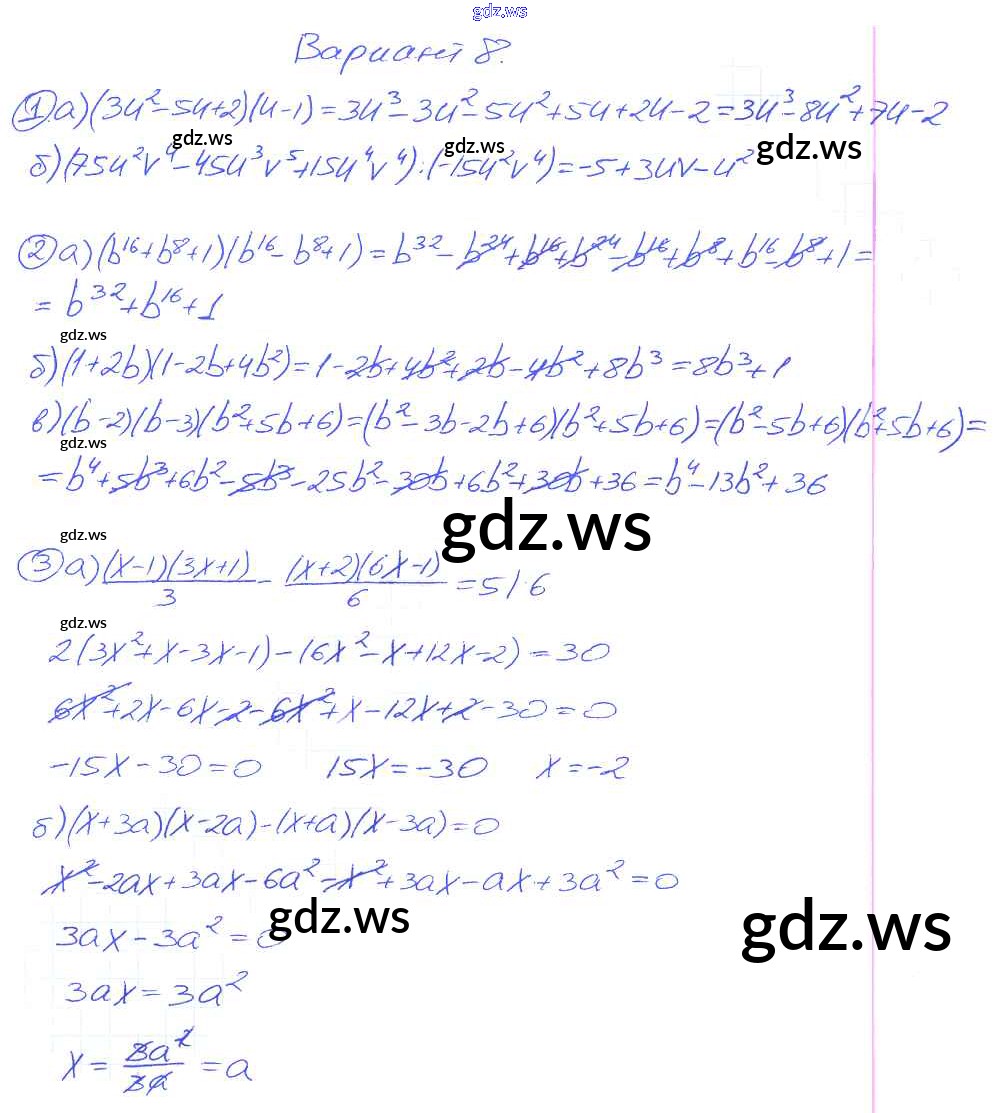 gdz.ws
Вариант 8.
1 а) (3u² - 5u + 2)(u - 1) = 3u³ - 3u² - 5u² + 5u + 2u - 2 = 3u³ - 8u² + 7u - 2
gdz.ws gdz.ws gdz.ws
б) (75u²v⁴ - 45u³v⁵ + 15u⁴v⁴) : (-15u²v⁴) = -5 + 3uv - u²
2 а) (b¹⁶ + b⁸ + 1)(b¹⁶ - b⁸ + 1) = b³² - b²⁴ + b¹⁶ + b²⁴ - b¹⁶ + b⁸ + b¹⁶ - b⁸ + 1 =
= b³² + b¹⁶ + 1
gdz.ws
б) (1 + 2b)(1 - 2b + 4b²) = 1 - 2b + 4b² + 2b - 4b² + 8b³ = 8b³ + 1
в) (b - 2)(b - 3)(b² + 5b + 6) = (b² - 3b - 2b + 6)(b² + 5b + 6) = (b² - 5b + 6)(b² + 5b + 6) =
gdz.ws
= b⁴ + 5b³ + 6b² - 5b³ - 25b² - 30b + 6b² + 30b + 36 = b⁴ - 13b² + 36
gdz.ws
gdz.ws
3 а) (x - 1)(3x + 1)/3 - (x + 2)(6x - 1)/6 = 5 | · 6
gdz.ws
2(3x² + x - 3x - 1) - (6x² - x + 12x - 2) = 30
6x² + 2x - 6x - 2 - 6x² + x - 12x + 2 - 30 = 0
-15x - 30 = 0 15x = -30 x = -2
б) (x + 3a)(x - 2a) - (x + a)(x - 3a) = 0
x² - 2ax + 3ax - 6a² - x² + 3ax - ax + 3a² = 0
gdz.ws gdz.ws
3ax - 3a² = 0
3ax = 3a²
x = 3a²/3a = a